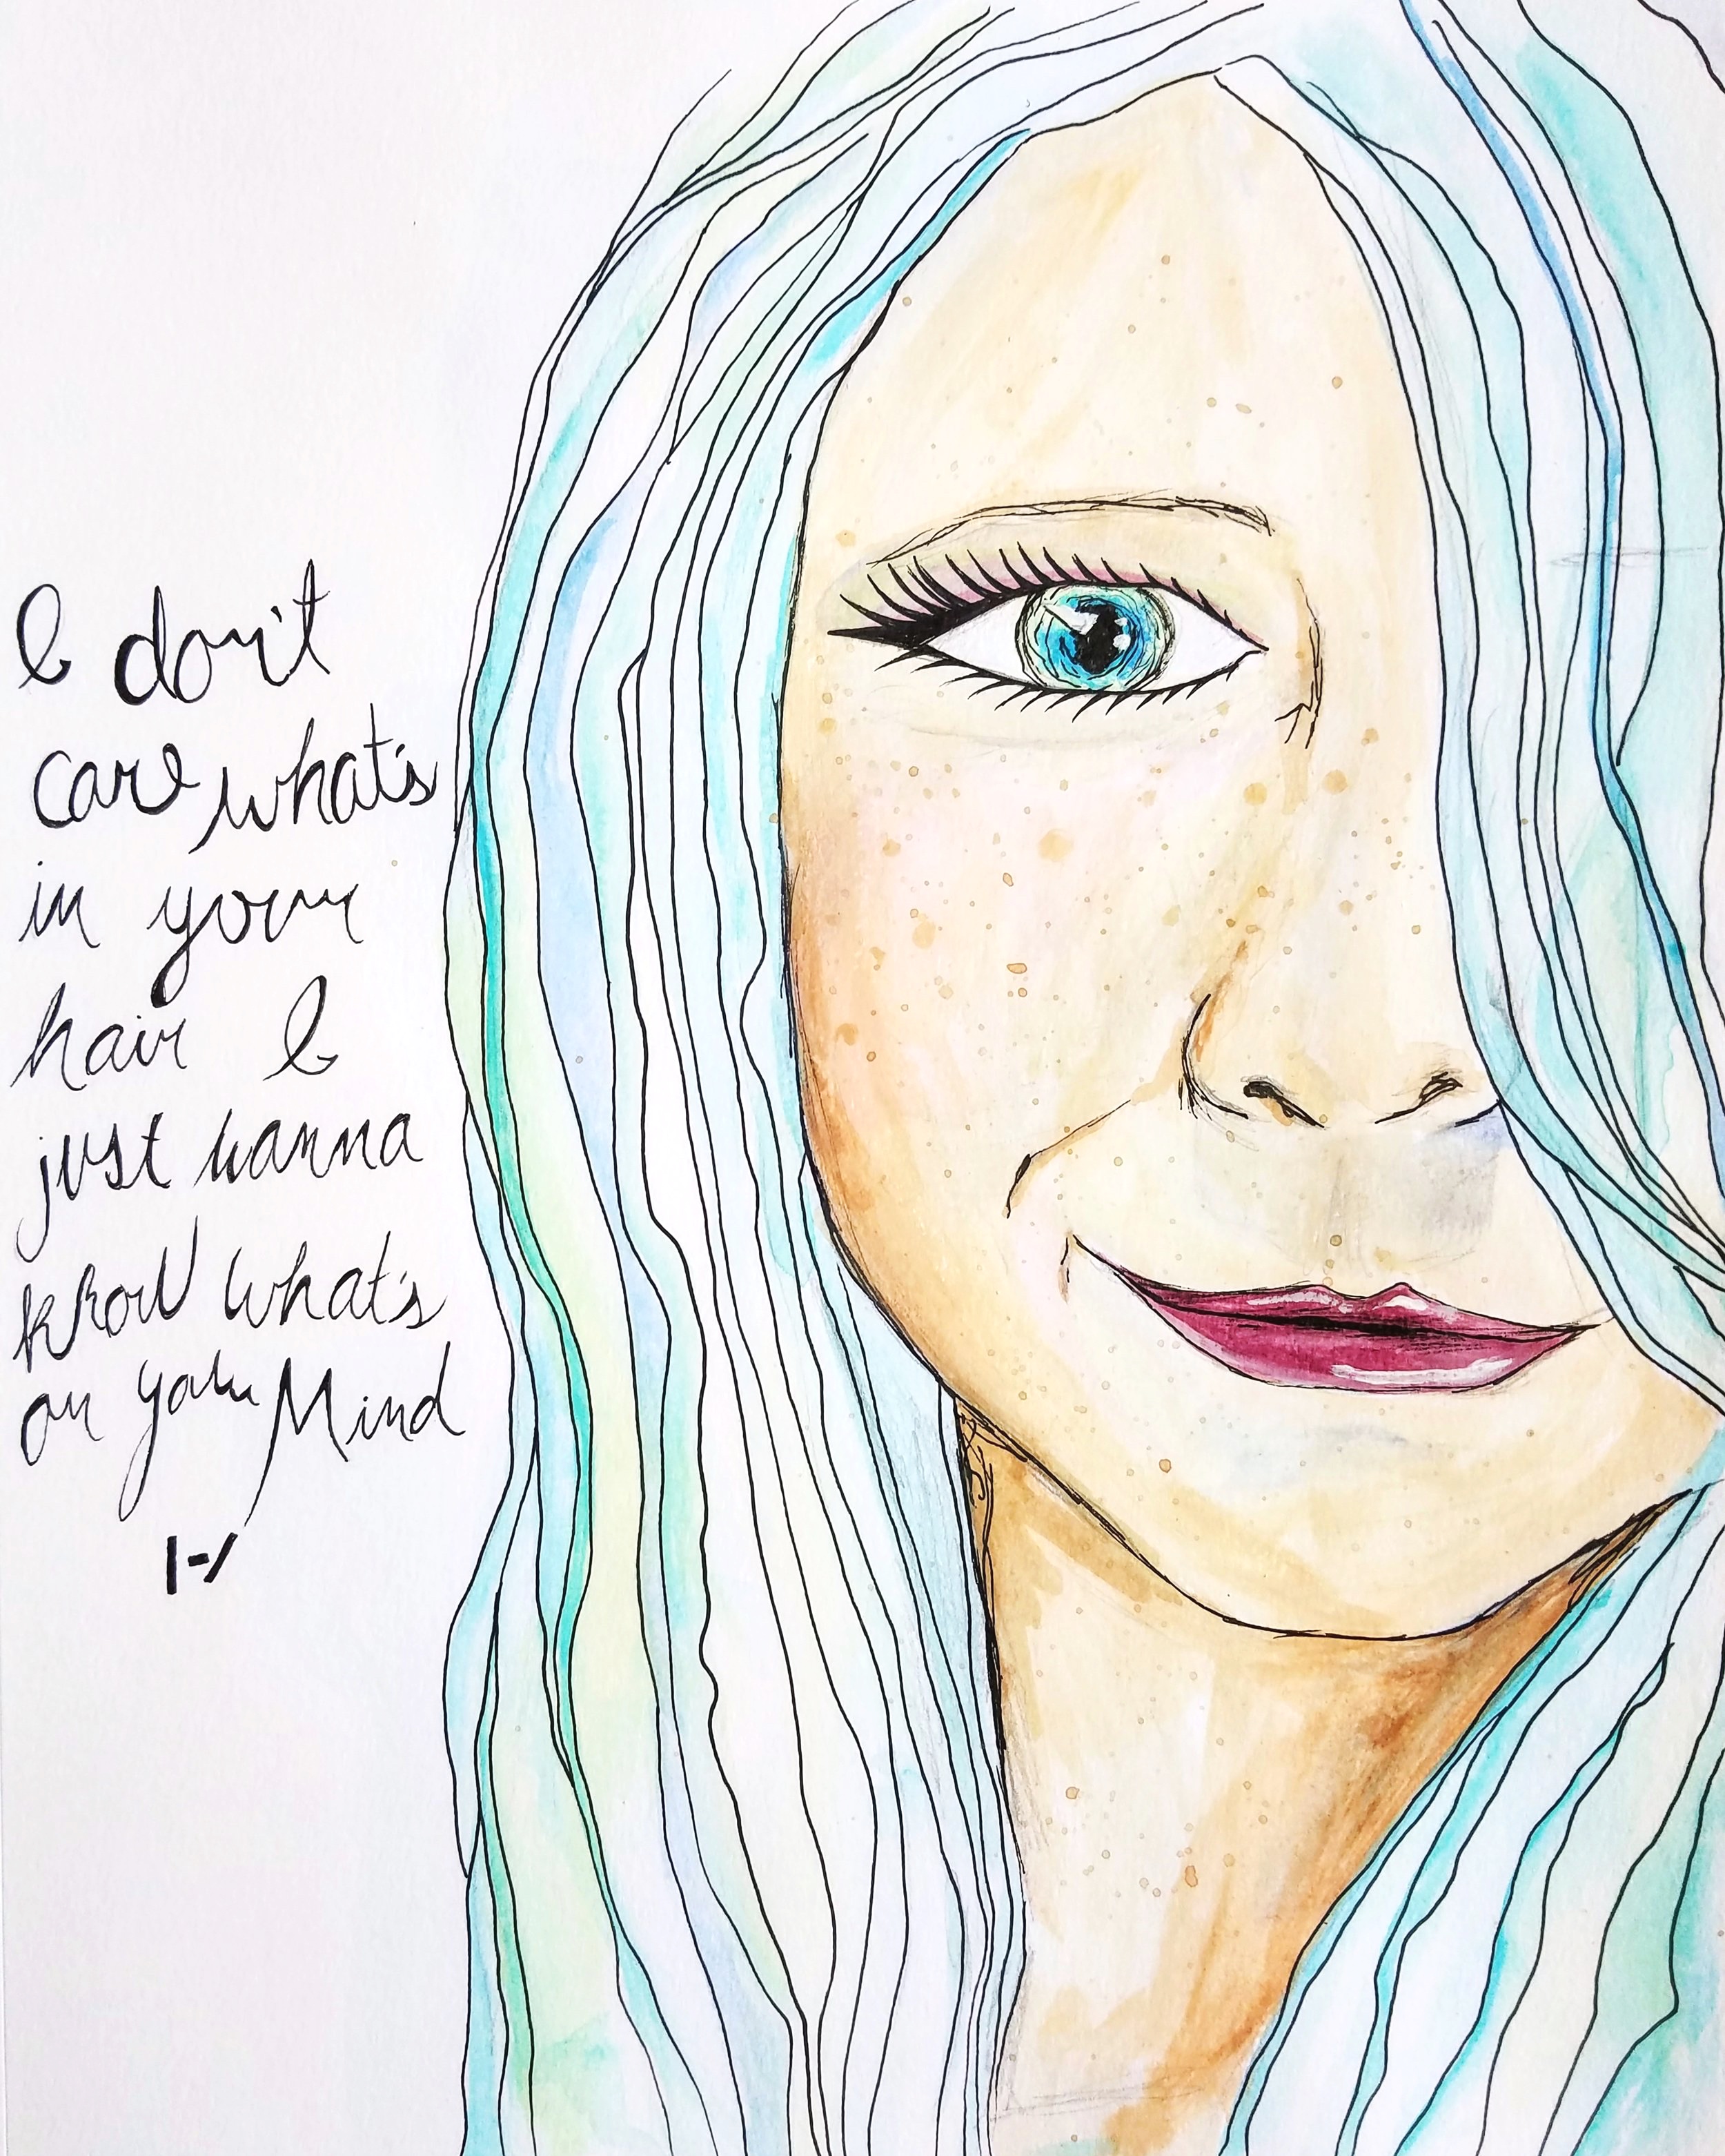 I don't
care what's
in your
hair I
just wanna
know what's
on your Mind
|-/